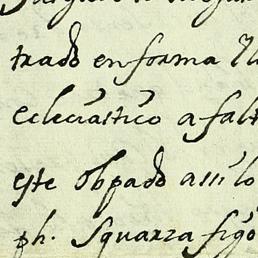 trado en forma
ecleciastico a falt
este obpado assi lo
ph. Squarza figo